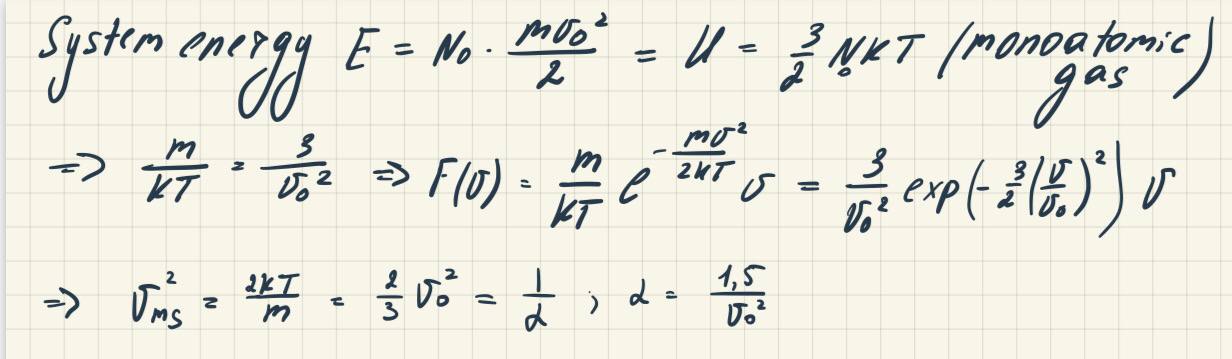 System energy E = N₀ · mv₀²/2 = U = 3/2 N₀kT (monoatomic gas)
=> m/kT = 3/v₀² => F(v) = m/kT e^(-mv²/2kT) v = 3/v₀² exp(-3/2(v/v₀)²) v
=> v²ms = 2kT/m = 2/3 v₀² = 1/α ; α = 1,5/v₀²